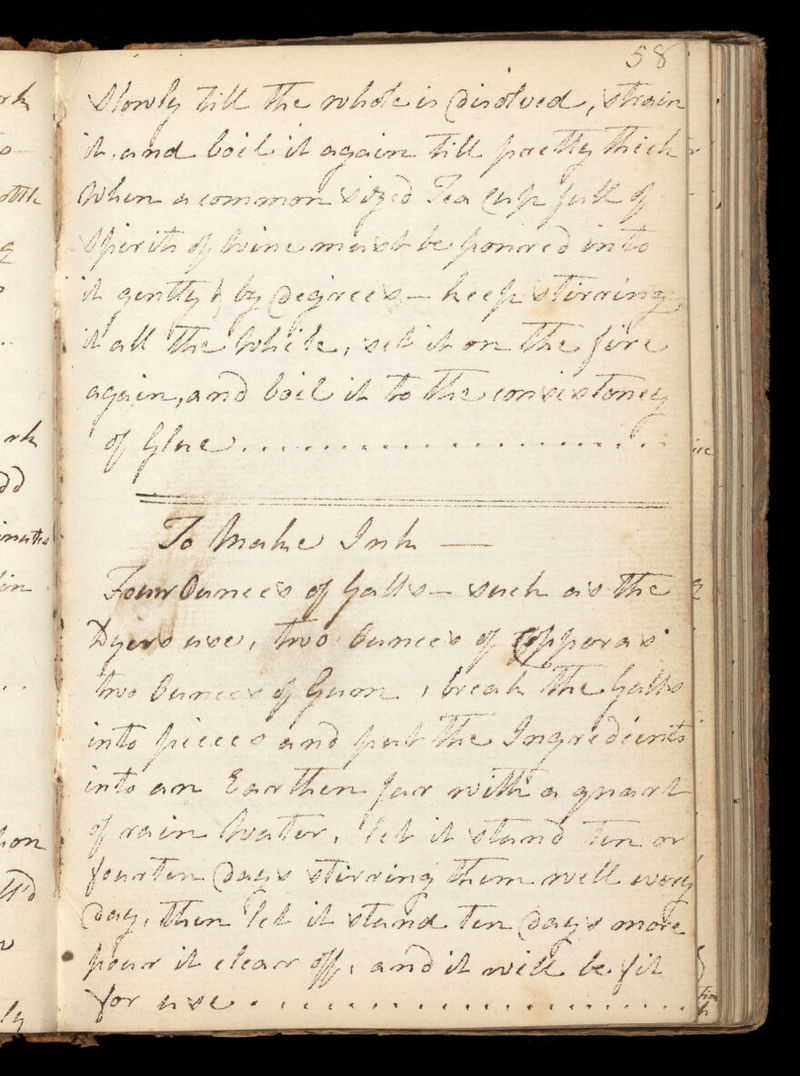 58
Slowly till the whole is Disolved, strain
it, and boil it again till pretty thick
When a common sized Tea Cup full of
Spirits of Wine must be poured into
it gently & by Degrees — keep stirring
it all the While, set it on the fire
again, and boil it to the consistency
of Glue
To Make Ink —
Four Ounces of Galls — such as the
Dyers use, two Ounces of Copperas
two Ounces of Gum, break the Galls
into pieces and put the Ingredients
into an Earthen Jar with a quart
of rain Water, let it stand ten or
fourten Days stirring them well every
Day, then let it stand ten Days more
pour it clear off, and it will be fit
for use